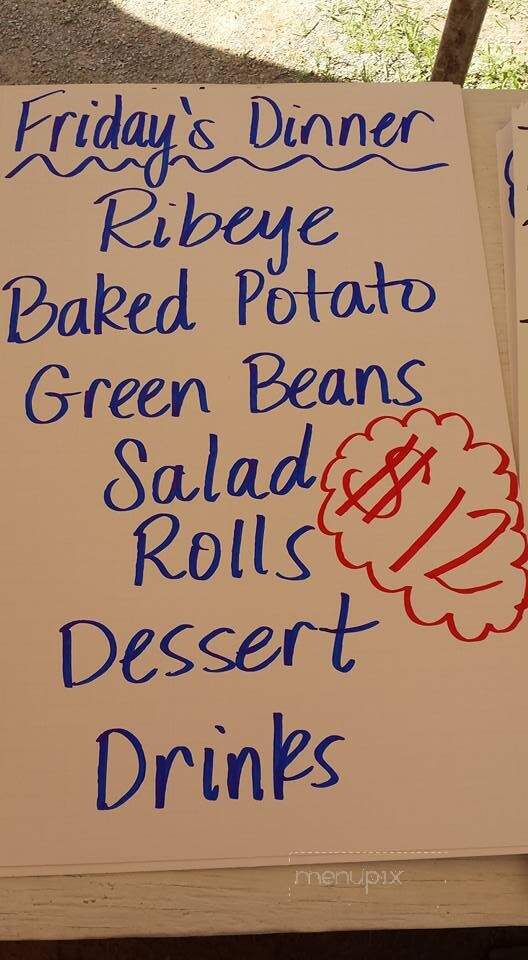 Friday's Dinner
Ribeye
Baked Potato
Green Beans
Salad
Rolls
$12
Dessert
Drinks
menupix